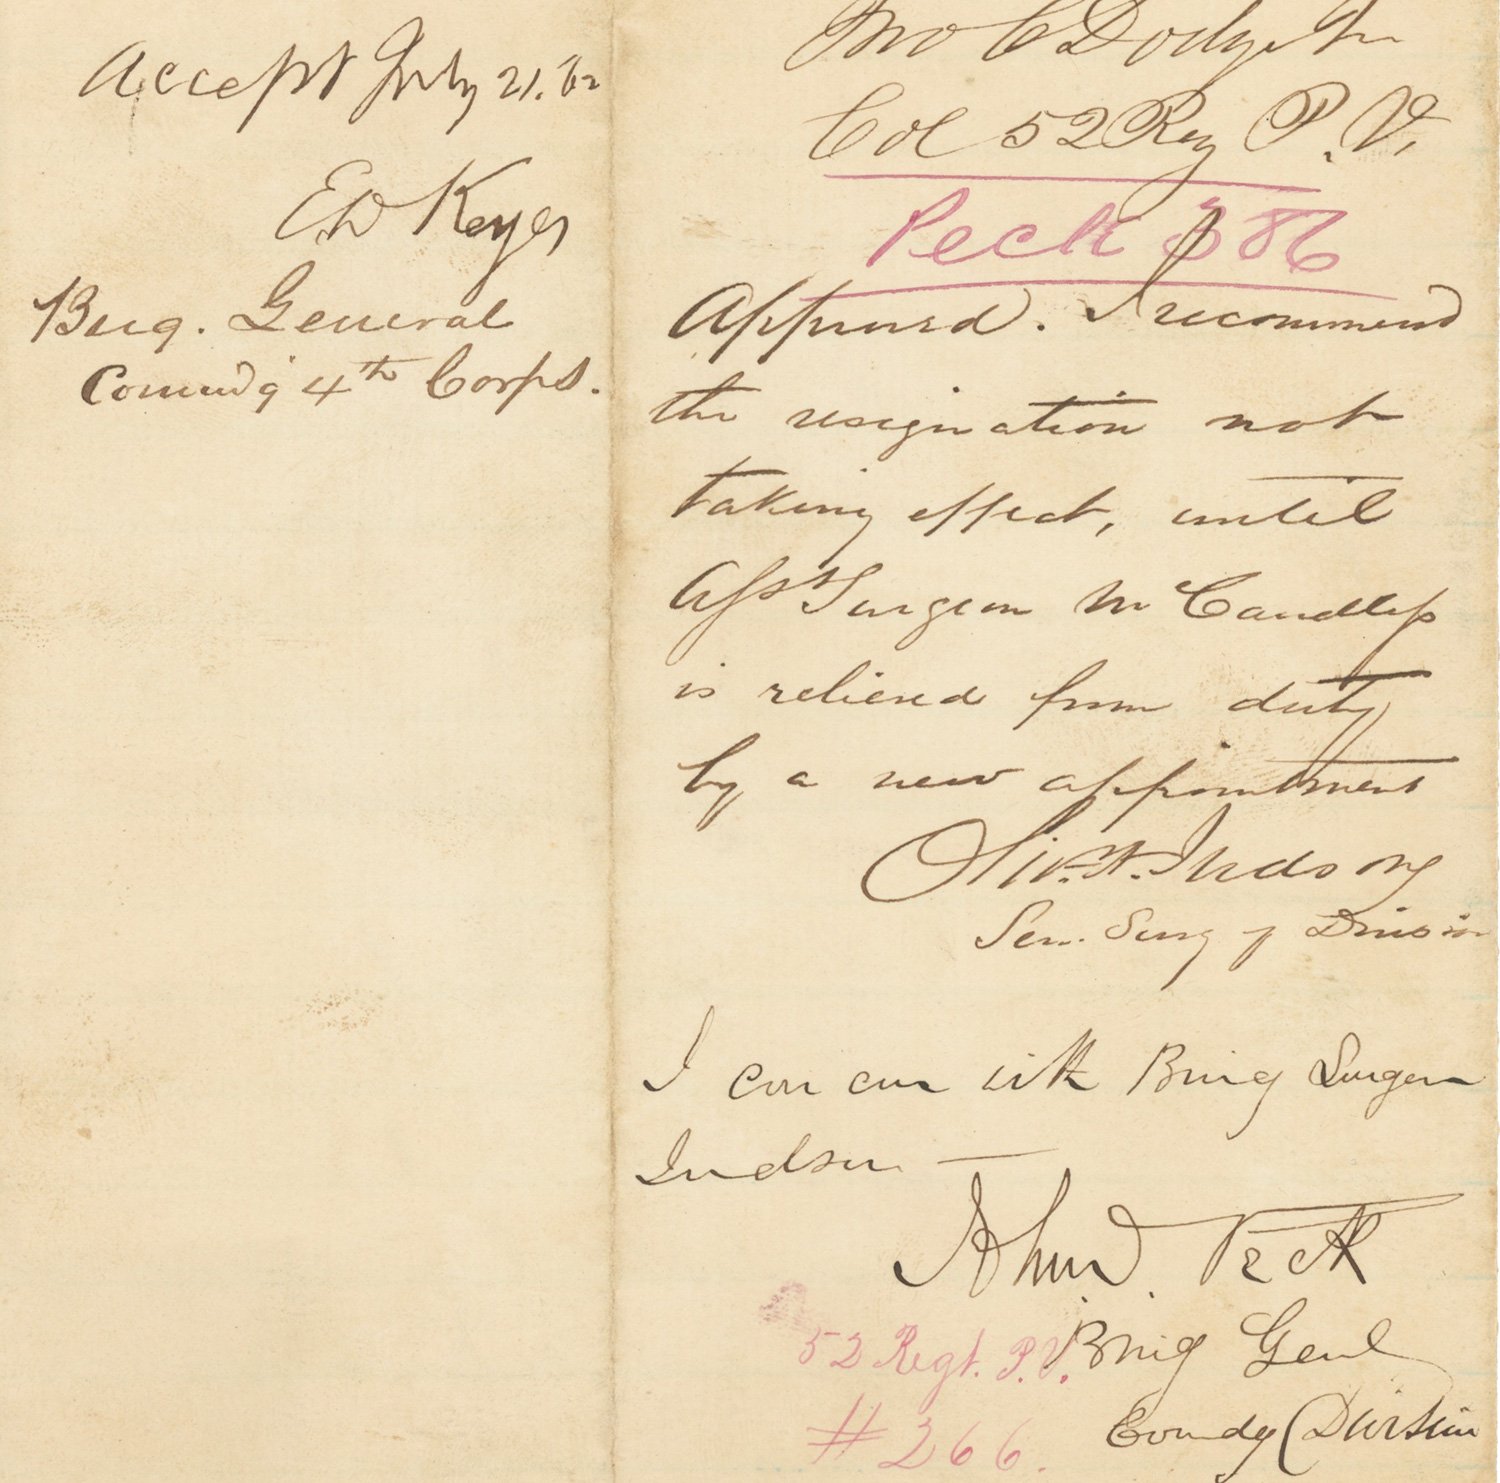 Accept July 21. 62
E D Keyes
Brig. General
Comnd'g 4th Corps.
Jno C Dodge Jr
Col 52 Reg P. V.
Peck 386
Approved. I recommend
the resignation not
taking effect, until
Asst Surgeon McCandless
is relieved from duty
by a new appointment
Oliv. A. Judson
Sen. Surg of Division
I concur with Brig Surgeon
Judson —
John J. Peck
Brig Genl
Comdg Division
52 Regt. P. V.
# 266.